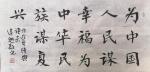 为中国
人民谋
幸福为
中华民
族谋复
兴